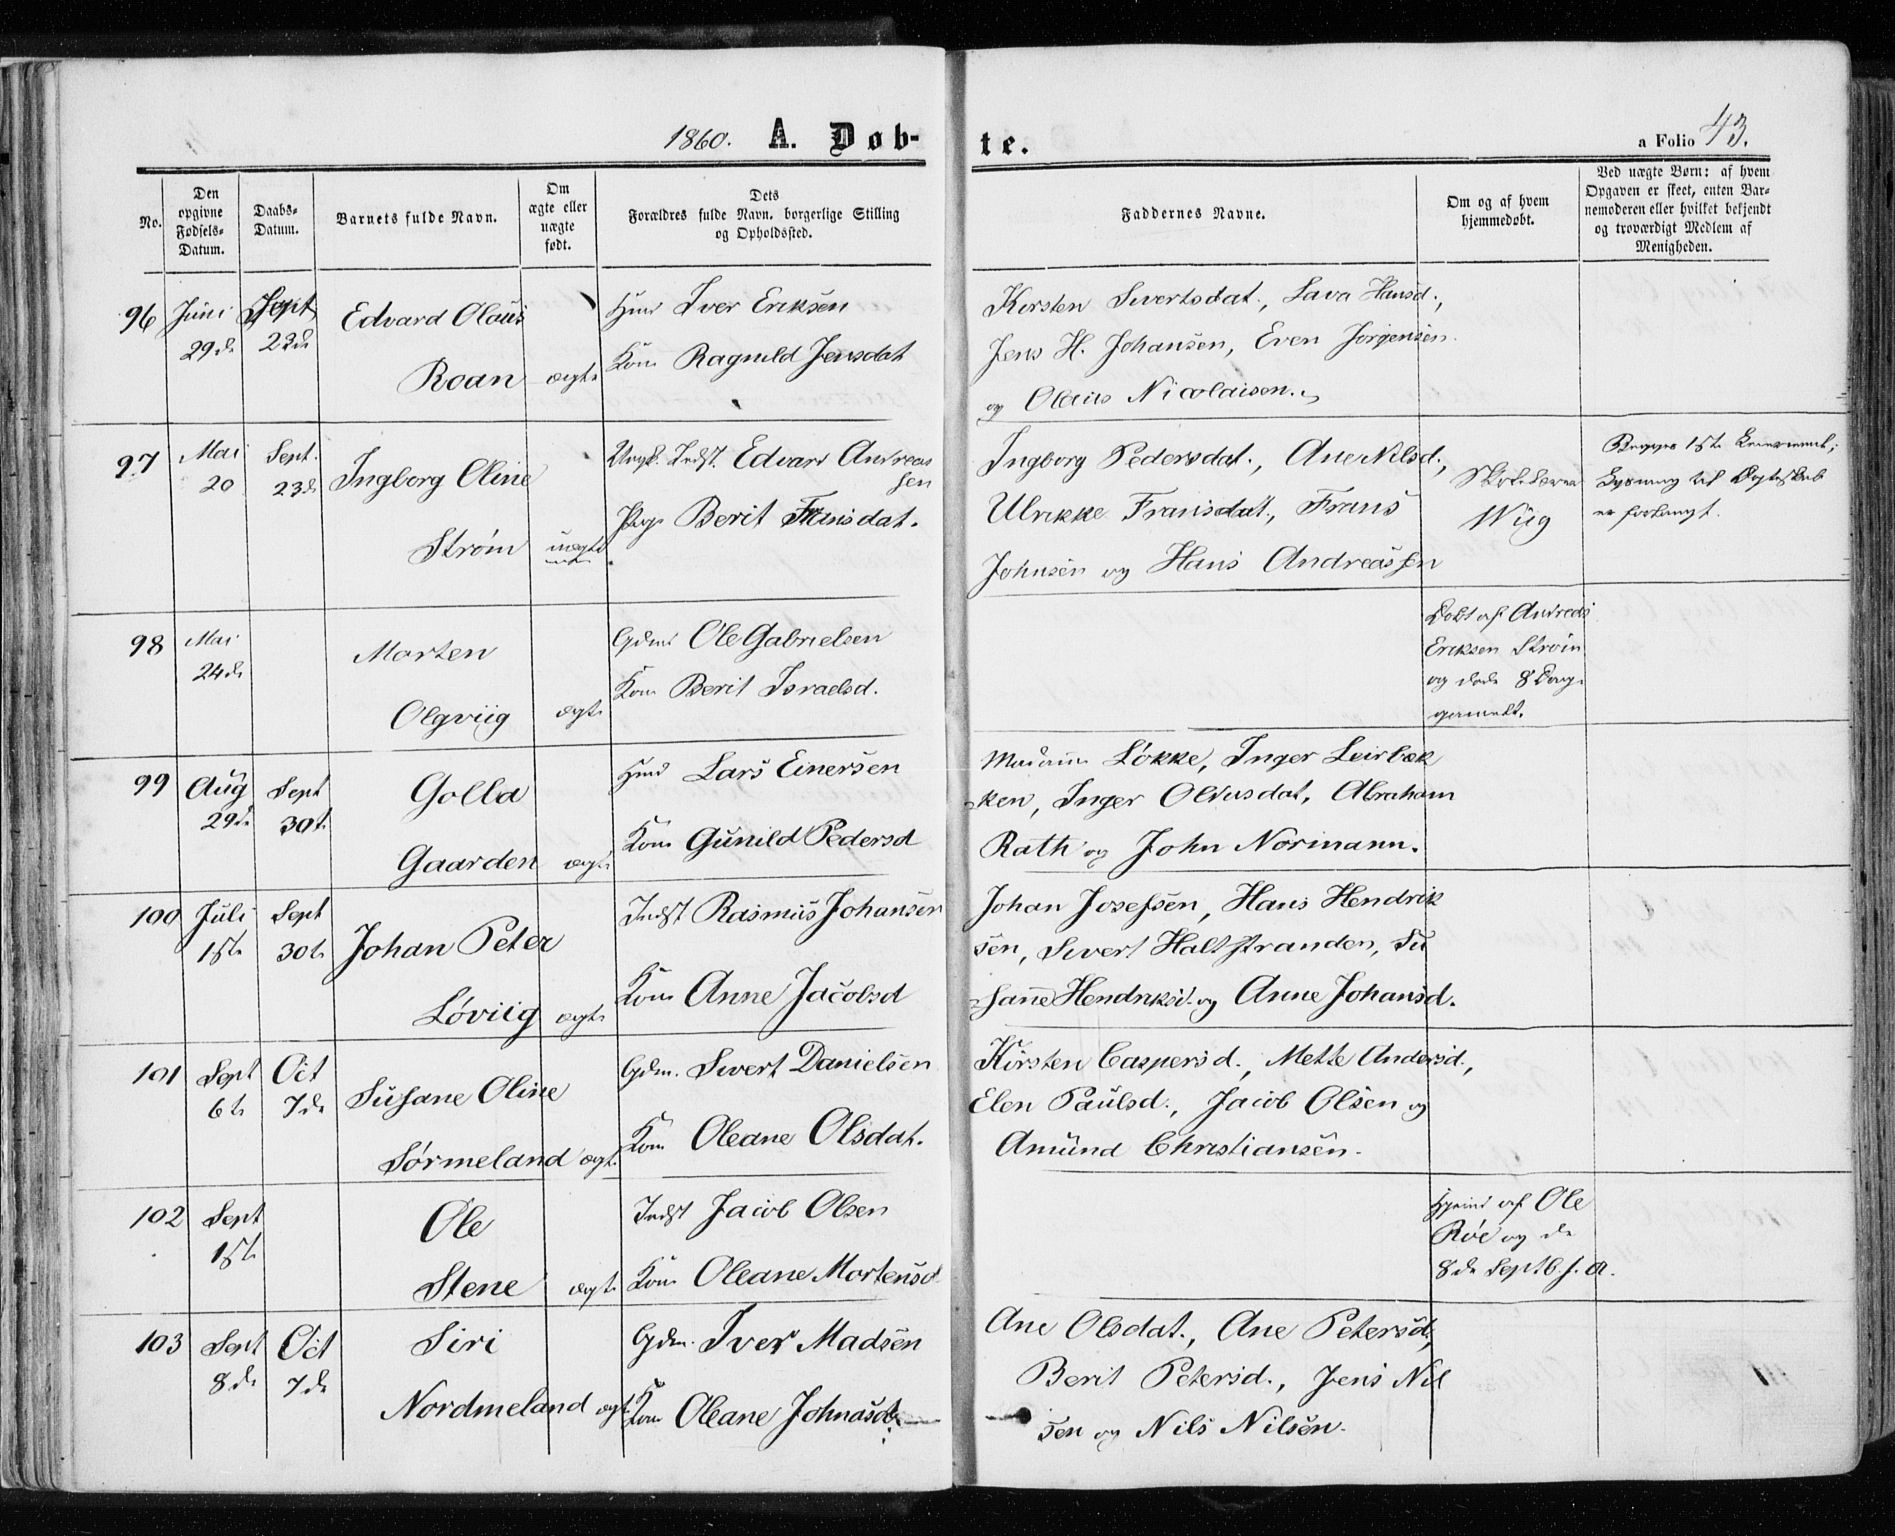 1860. A. Døb-
te.
a Folio 43.
No.
Den opgivne Fødsels-Datum.
Daabs-Datum.
Barnets fulde Navn.
Om ægte eller uægte født.
Dets Forældres fulde Navn, borgerlige Stilling og Opholdssted.
Faddernes Navne.
Om og af hvem hjemmedøbt.
Ved uægte Børn: af hvem Opgaven er skeet, enten Barnemoderen eller hvilket bekjendt og troværdigt Medlem af Menigheden.
96 Juni Sept Edvard Olaus Hmd Iver Eriksen
29de 23de Roan ægte Kone Ragnild Jensdat
Kirsten Sivertsdat., Lava Hansd.,
Jens H. Johansen, Even Jørgensen
og Olaus Nicolaisen.
97 Mai Sept. Ingborg Oline Ungk. Indst. Edvard Andreas
20 23de sen
Strøm uægte Pige Berit Fransdat.
Ingborg Pedersdat., Ane Nilsd.,
Ulrikke Fransdat, Frans
Johnsen og Hans Andreassen
Skolelærer
Wiig
Begges 1ste Leiermaal;
Lysning til Ægteskab
er forlangt.
98 Mai Morten Gdmd Ole Gabrielsen
24de Olgviig ægte Kone Berit Israelsd.
Døbt af Andreas
Eriksen Strøm
og døde 8 Dage
gammelt.
99 Aug Sept Golla Hmd Lars Einersen
29de 30te Gaarden ægte Kone Gunild Pedersd
Madame Løkke, Inger Leirbæk
ken, Inger Olivusdat, Abraham
Rath og John Normann.
100 Juli Sept Johan Peter Indst Rasmus Johansen
1ste 30te Løviig ægte Kone Anne Jacobsd
Johan Josefsen, Hans Hendrik
sen, Sivert Haltstranden, Su
sane Hendriksd. og Anne Johansd.
101 Sept Oct Susane Oline Gdm. Sivert Danielsen
6te 7de Sørmeland ægt. Kone Oleane Olsdat.
Kirsten Caspersd., Mette Andersd.,
Elen Paulsd., Jacob Olsen og
Amund Christiansen.
102 Sept Ole Indst Jacob Olsen
1ste Stene ægte Kone Oleane Mortensd
Hjemd af Ole
Røe og de
8de Septb. s. A.
103 Sept Oct Siri Gdm. Iver Madsen
8de 7de Nordmeland ægt. Kone Oleane Johnasd.
Ane Olsdat., Ane Petersd.,
Berit Petersd., Jens Nil
sen og Nils Nilsen.